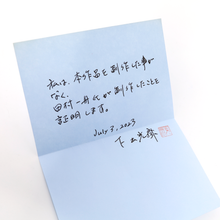 私は、本作品を制作した事が
なく、
田村一舟氏が制作したことを
証明します。
July 7, 2023